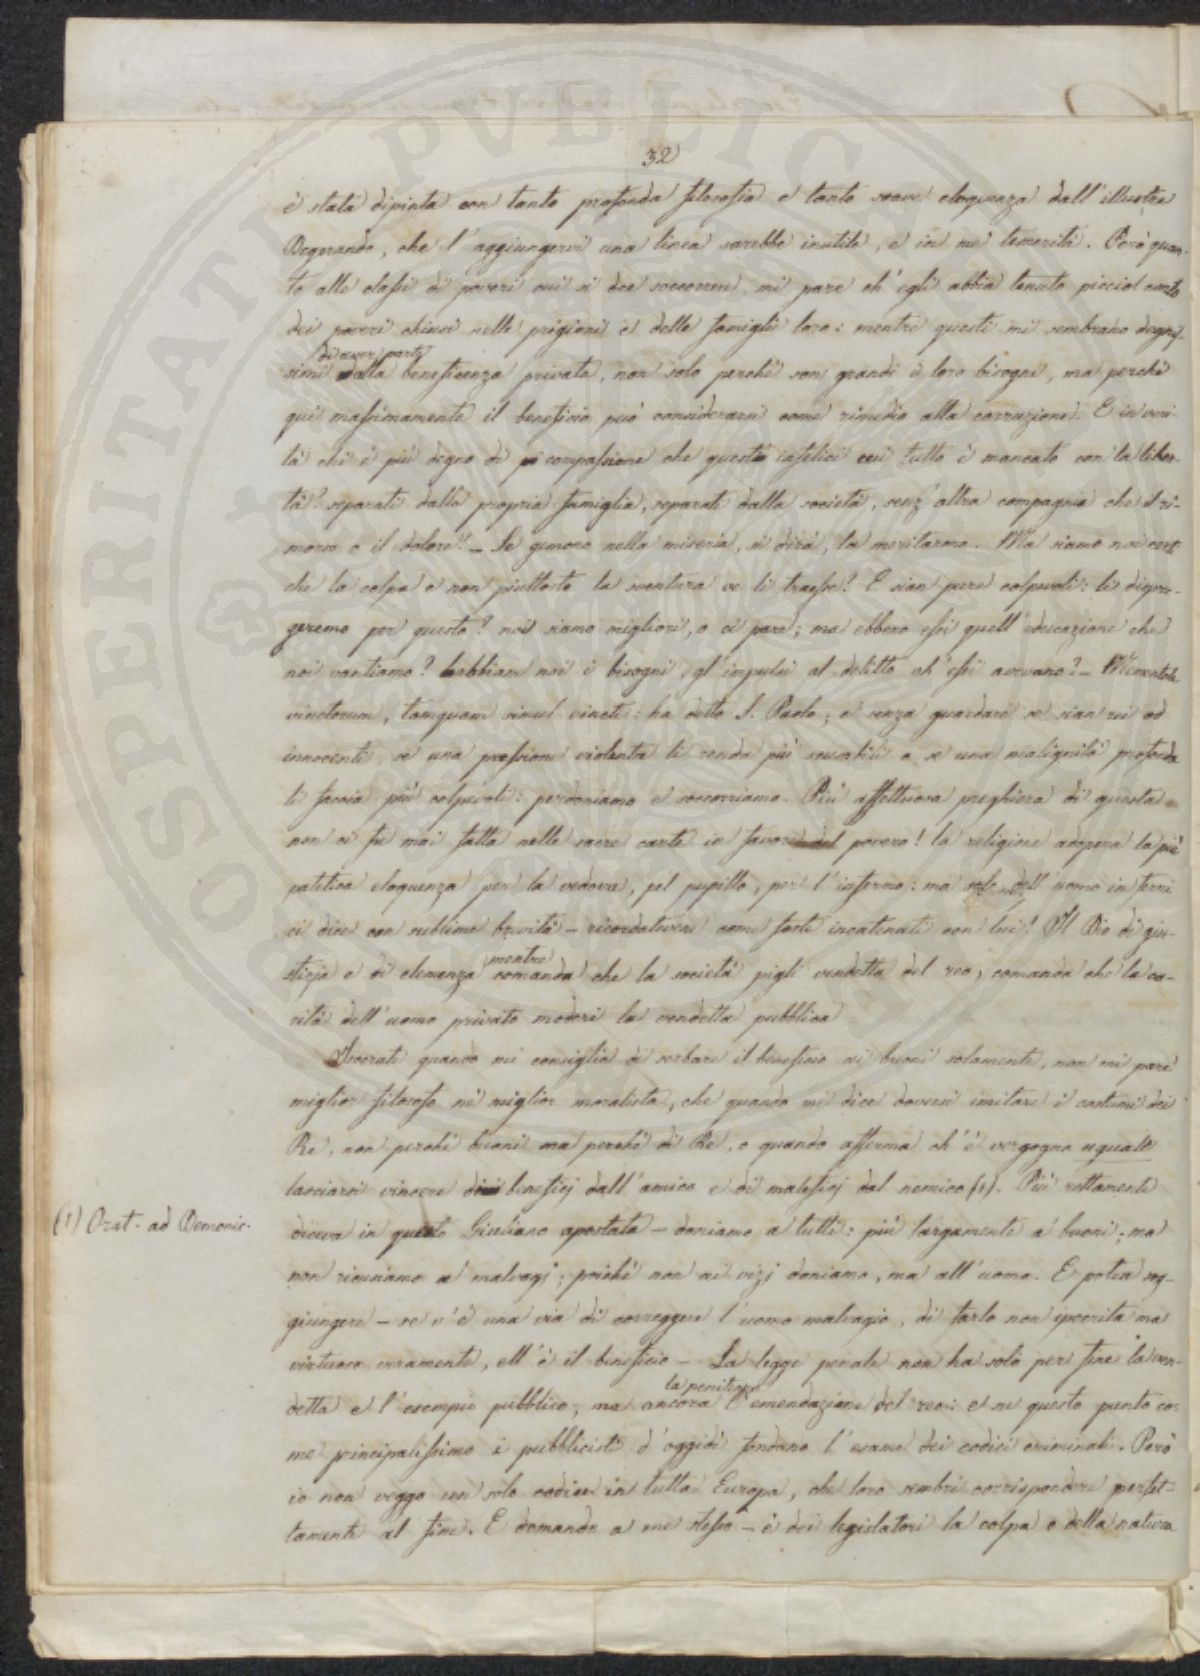 32
è stata dipinta con tanto profonda filosofia e tanto soave eloquenza dall'illustre
Degerando, che l'aggiungervi una linea sarebbe inutile, e in me temerità. Però quan-
to alle classi di poveri cui si dee soccorrere, mi pare ch'egli abbia tenuto picciol conto
dei poveri chiusi nelle prigioni e delle famiglie loro: mentre questi mi sembrano degnis-
di aver parte
simi alla beneficenza privata, non solo perchè son grandi i loro bisogni, ma perchè
qui massimamente il beneficio può considerarsi come rimedio alla corruzione. E in veri-
tà chi è più degno di compassione che questi infelici cui tutto è mancato con la liber-
tà? separati dalla propria famiglia, separati dalla società, senz'altra compagnia che il ri-
morso e il dolore? – Se gemono nella miseria, si dirà, la meritarono. Ma siamo noi certi
che la colpa e non piuttosto la sventura ve li traesse? E sian pure colpevoli: li dispre-
geremo per questo? noi siamo migliori, o ci pare; ma ebbero essi quell'educazione che
noi vantiamo? abbiam noi i bisogni, gl'impulsi al delitto ch'essi avevano? – Mementote
vinctorum, tamquam simul vincti: ha detto S. Paolo; e senza guardare se sian rei od
innocenti, se una passione violenta li renda più scusabili o se una malignità profonda
li faccia più colpevoli: perdoniamo e soccorriamo. Più affettuosa preghiera di questa
non si fu mai fatta nelle sacre carte in favore del povero! la religione adopera la più
patetica eloquenza per la vedova, pel pupillo, per l'infermo: ma solo dell'uomo in ferri
ci dice con sublime brevità – ricordatevene come foste incatenati con lui! Il Dio di giu-
mentre
stizia e di clemenza comanda che la società pigli vendetta del reo, comanda che la ca-
rità dell'uomo privato moderi la vendetta pubblica
Isocrate quando mi consiglia di serbare il beneficio ai buoni solamente, non mi pare
miglior filosofo nè miglior moralista, che quando mi dice doversi imitare i costumi dei
Re, non perchè buoni ma perchè di Re, o quando afferma ch'è vergogna uguale
lasciarsi vincere di beneficj dall'amico e di maleficj dal nemico (1). Più rettamente
(1) Orat. ad Demonic.
diceva in questo Giuliano apostata – doniamo a tutti: più largamente a' buoni; ma
non ricusiamo a' malvagj; poichè non ai vizj doniamo, ma all'uomo. E potea sog-
giungere – se v'è una via di correggere l'uomo malvagio, di farlo non ipocrita ma
virtuoso veramente, ell'è il beneficio – La legge penale non ha solo per fine la ven-
la penitenza
detta e l'esempio pubblico, ma ancora l'emendazione del reo: e su questo punto co-
me principalissimo i pubblicisti d'oggidì fondano l'esame dei codici criminali. Però
io non veggo un solo codice in tutta Europa, che loro sembri corrispondere perfet-
tamente al fine. E domando a me stesso – è dei legislatori la colpa o della natura